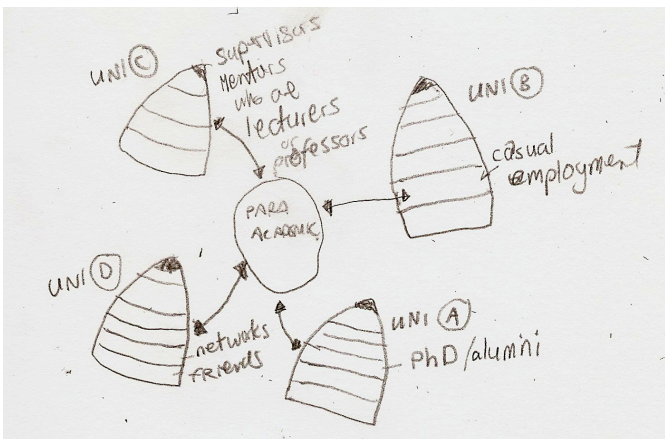 UNI C
supervisors
Mentors
who are
lecturers
or
professors
UNI B
casual
employment
PARA
ACADEMIC
UNI D
networks
friends
UNI A
PhD/alumni